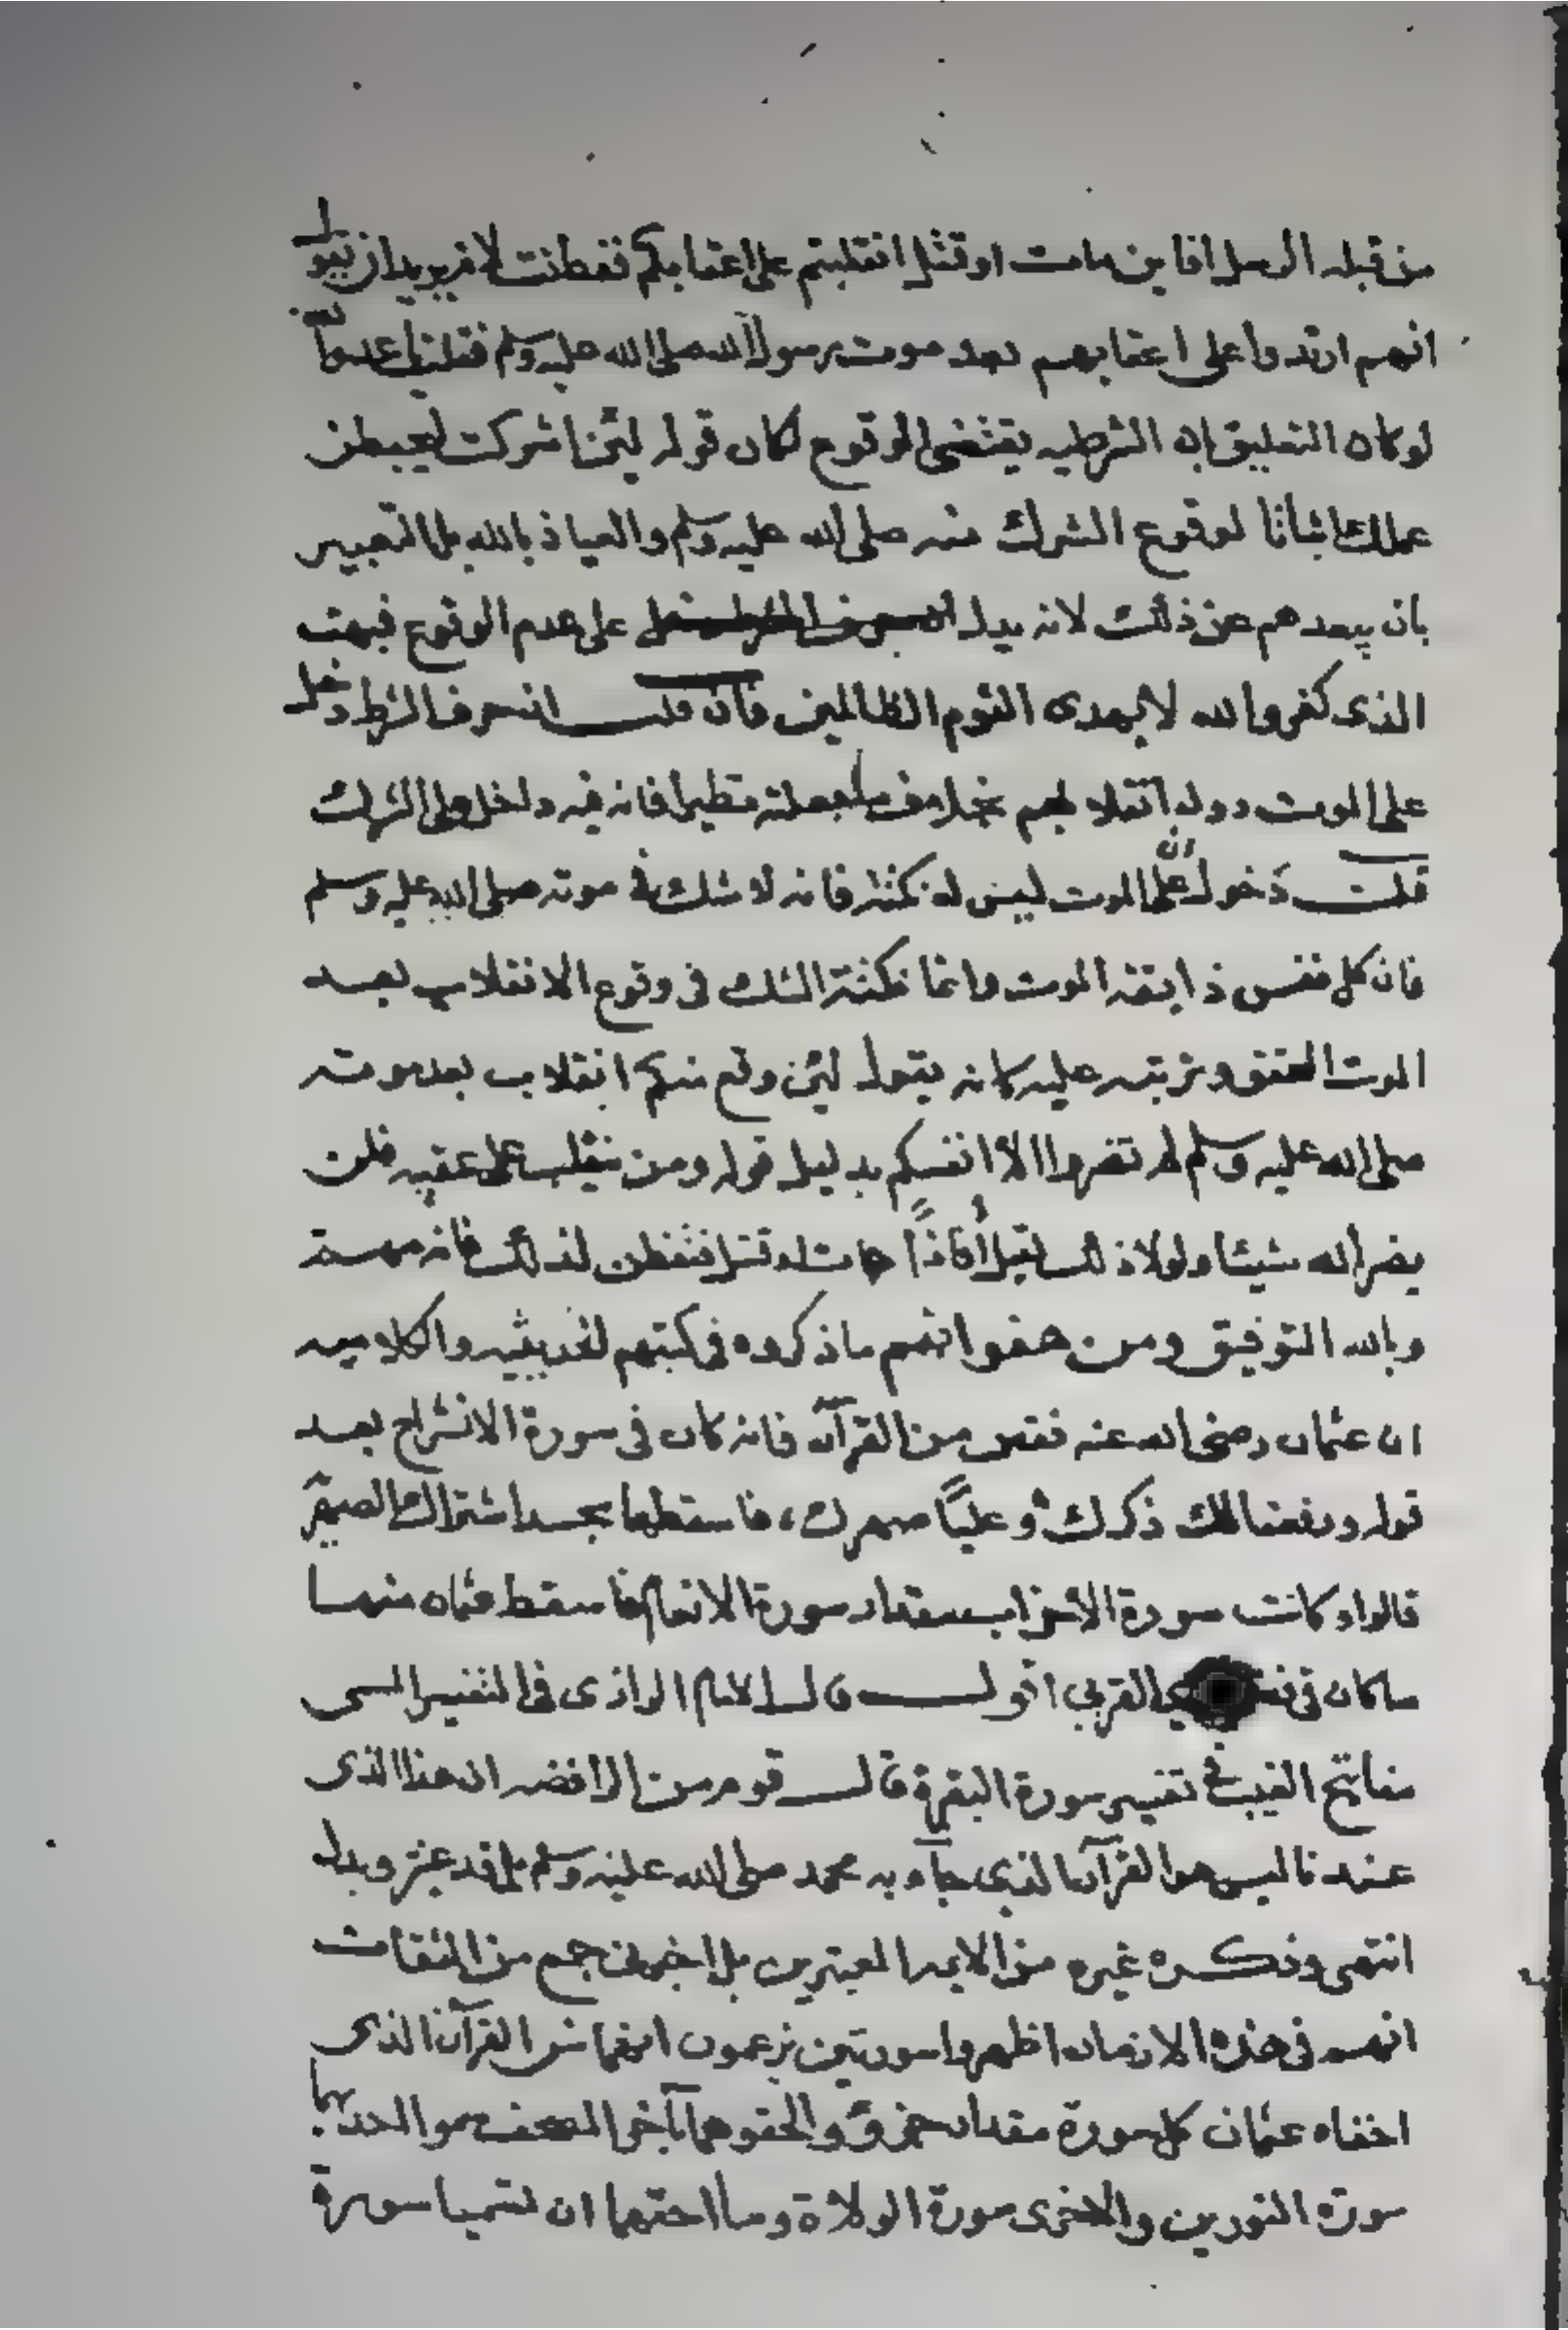 من قبله الرسل افاين مات او قتل انقلبتم على اعقابكم ففطنت لانه يريد ان يقول
انهم ارتدوا على اعقابهم بعد موت رسول الله صلى الله عليه وسلم فقلت يا عدو الله
لو كان التعليق بان الشرطيه يقتضى الوقوع لكان قوله لئن اشركت ليحبطن
عملك اثباتا لوقوع الشرك منه صلى الله عليه وسلم والعياذ بالله بل التعبير
بان يبعدهم عن ذلك لانه يدل على عدم الوقوع فبهت
الذى كفر والله لا يهدى القوم الظالمين فان قلت ان حرف الشرط دخل
على الموت دون انقلابهم بخلاف ما جعلته نظيرا فانه فيه داخل على الشرك
قلت دخول ان على الموت ليس له نكتة فانه لا شك فى موته صلى الله عليه وسلم
فان كل نفس ذايقة الموت وانما نكتة الشك فى وقوع الانقلاب بعد
الموت المحقق وترتبه عليه كانه يقول لئن وقع منكم انقلاب بعد موته
صلى الله عليه وسلم لم تضروا الا انفسكم بدليل قوله ومن ينقلب على عقبيه فلن
يضر الله شيئا ولولا ذلك لقيل أفاذا مات او قتل فتفطن لذلك فانه مهم
وبالله التوفيق ومن هفواتهم ما ذكروه فى كتبهم الحديثيه والكلاميه
ان عثمان رضى الله عنه نقص من القرآن فانه كان فى سورة الانشراح بعد
قوله ورفعنا لك ذكرك وعليًا صهرك، فاسقطها بحسد اشتراك الصهر
قالوا وكانت سورة الاحزاب مقدار سورة الانعام فاسقط عثمان منها
ما كان فى القربى اقول قال الامام الرازى فى التفسير المسمى
مفاتح الغيب فى تفسير سورة البقرة قال قوم من الرافضه ان هذا الذى
عندنا ليس هو القرآن الذى جآء به محمد صلى الله عليه وسلم بل قد غير وبدل
انتهى وذكره غيره من الايمه المعتبرين بل اخبرنى جمع من الثقات
انهم فى هذه الازمان اظهروا سورتين يزعمون انهما من القرآن الذى
اخفاه عثمان كل سورة مقدار جزؤ والحقوهما بآخر المصحف سموا احديهما
سورة النورين والاخرى سورة الولاة وما احقهما ان تسميا سورة